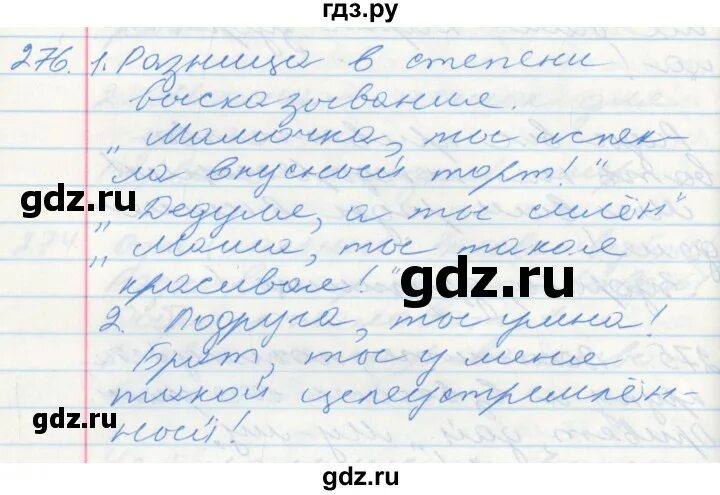 гдз.ру
276. 1. Разница в степени
высказывание.
„Мамочка, ты испек-
ла вкусный торт!“
„Дедуля, а ты силён“
„Маша, ты такая
красивая!“
gdz.ru
2. Подруга, ты умна!
Брат, ты у меня
такой целеустремлён-
ный!
gdz.ru
gdz.ru